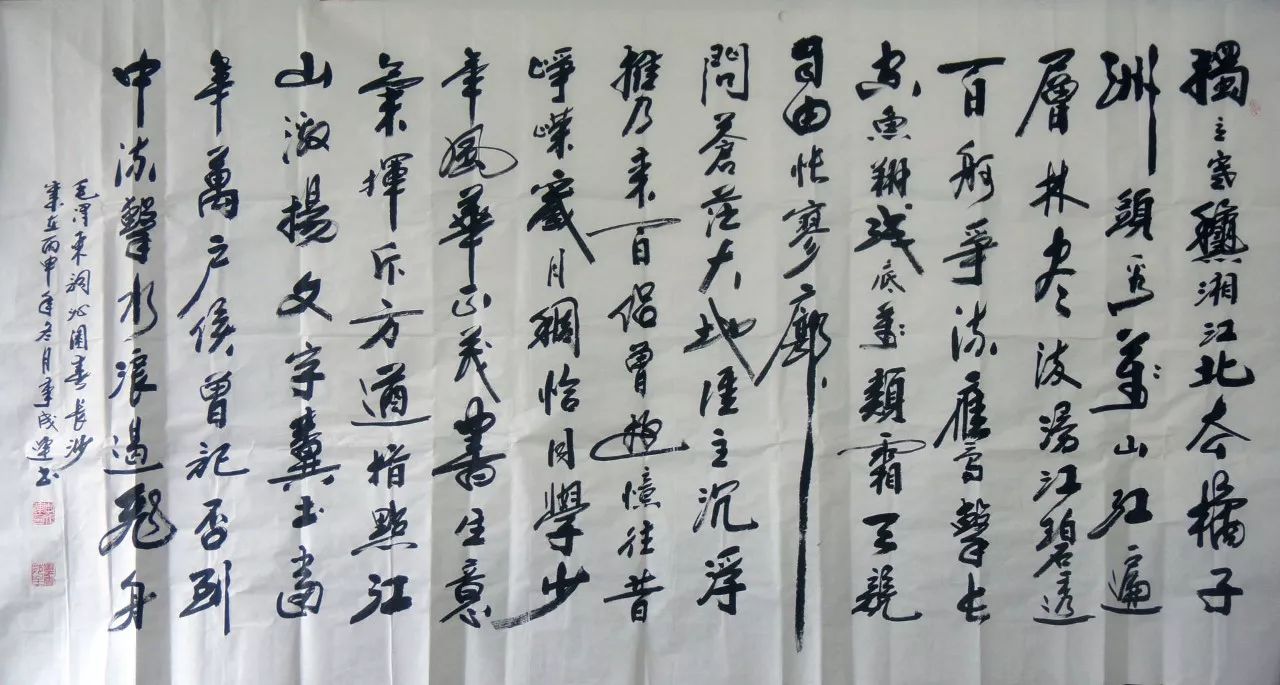 獨立寒龝湘江北去橘子
洲頭看萬山紅遍
層林尽染漫江碧透
百舸爭流鷹擊長
空魚翔浅底萬類霜天競
自由悵寥廓
問蒼茫大地誰主沉浮
攜乃來百侶曾遊憶往昔
崢嶸歲月稠恰同學少
年風華正茂書生意
氣揮斥方遒指點江
山激揚文字糞土當
年萬戶侯曾記否到
中流擊水浪遏飛舟
毛澤東詞沁園春長沙
歲在丙申年冬月李成書